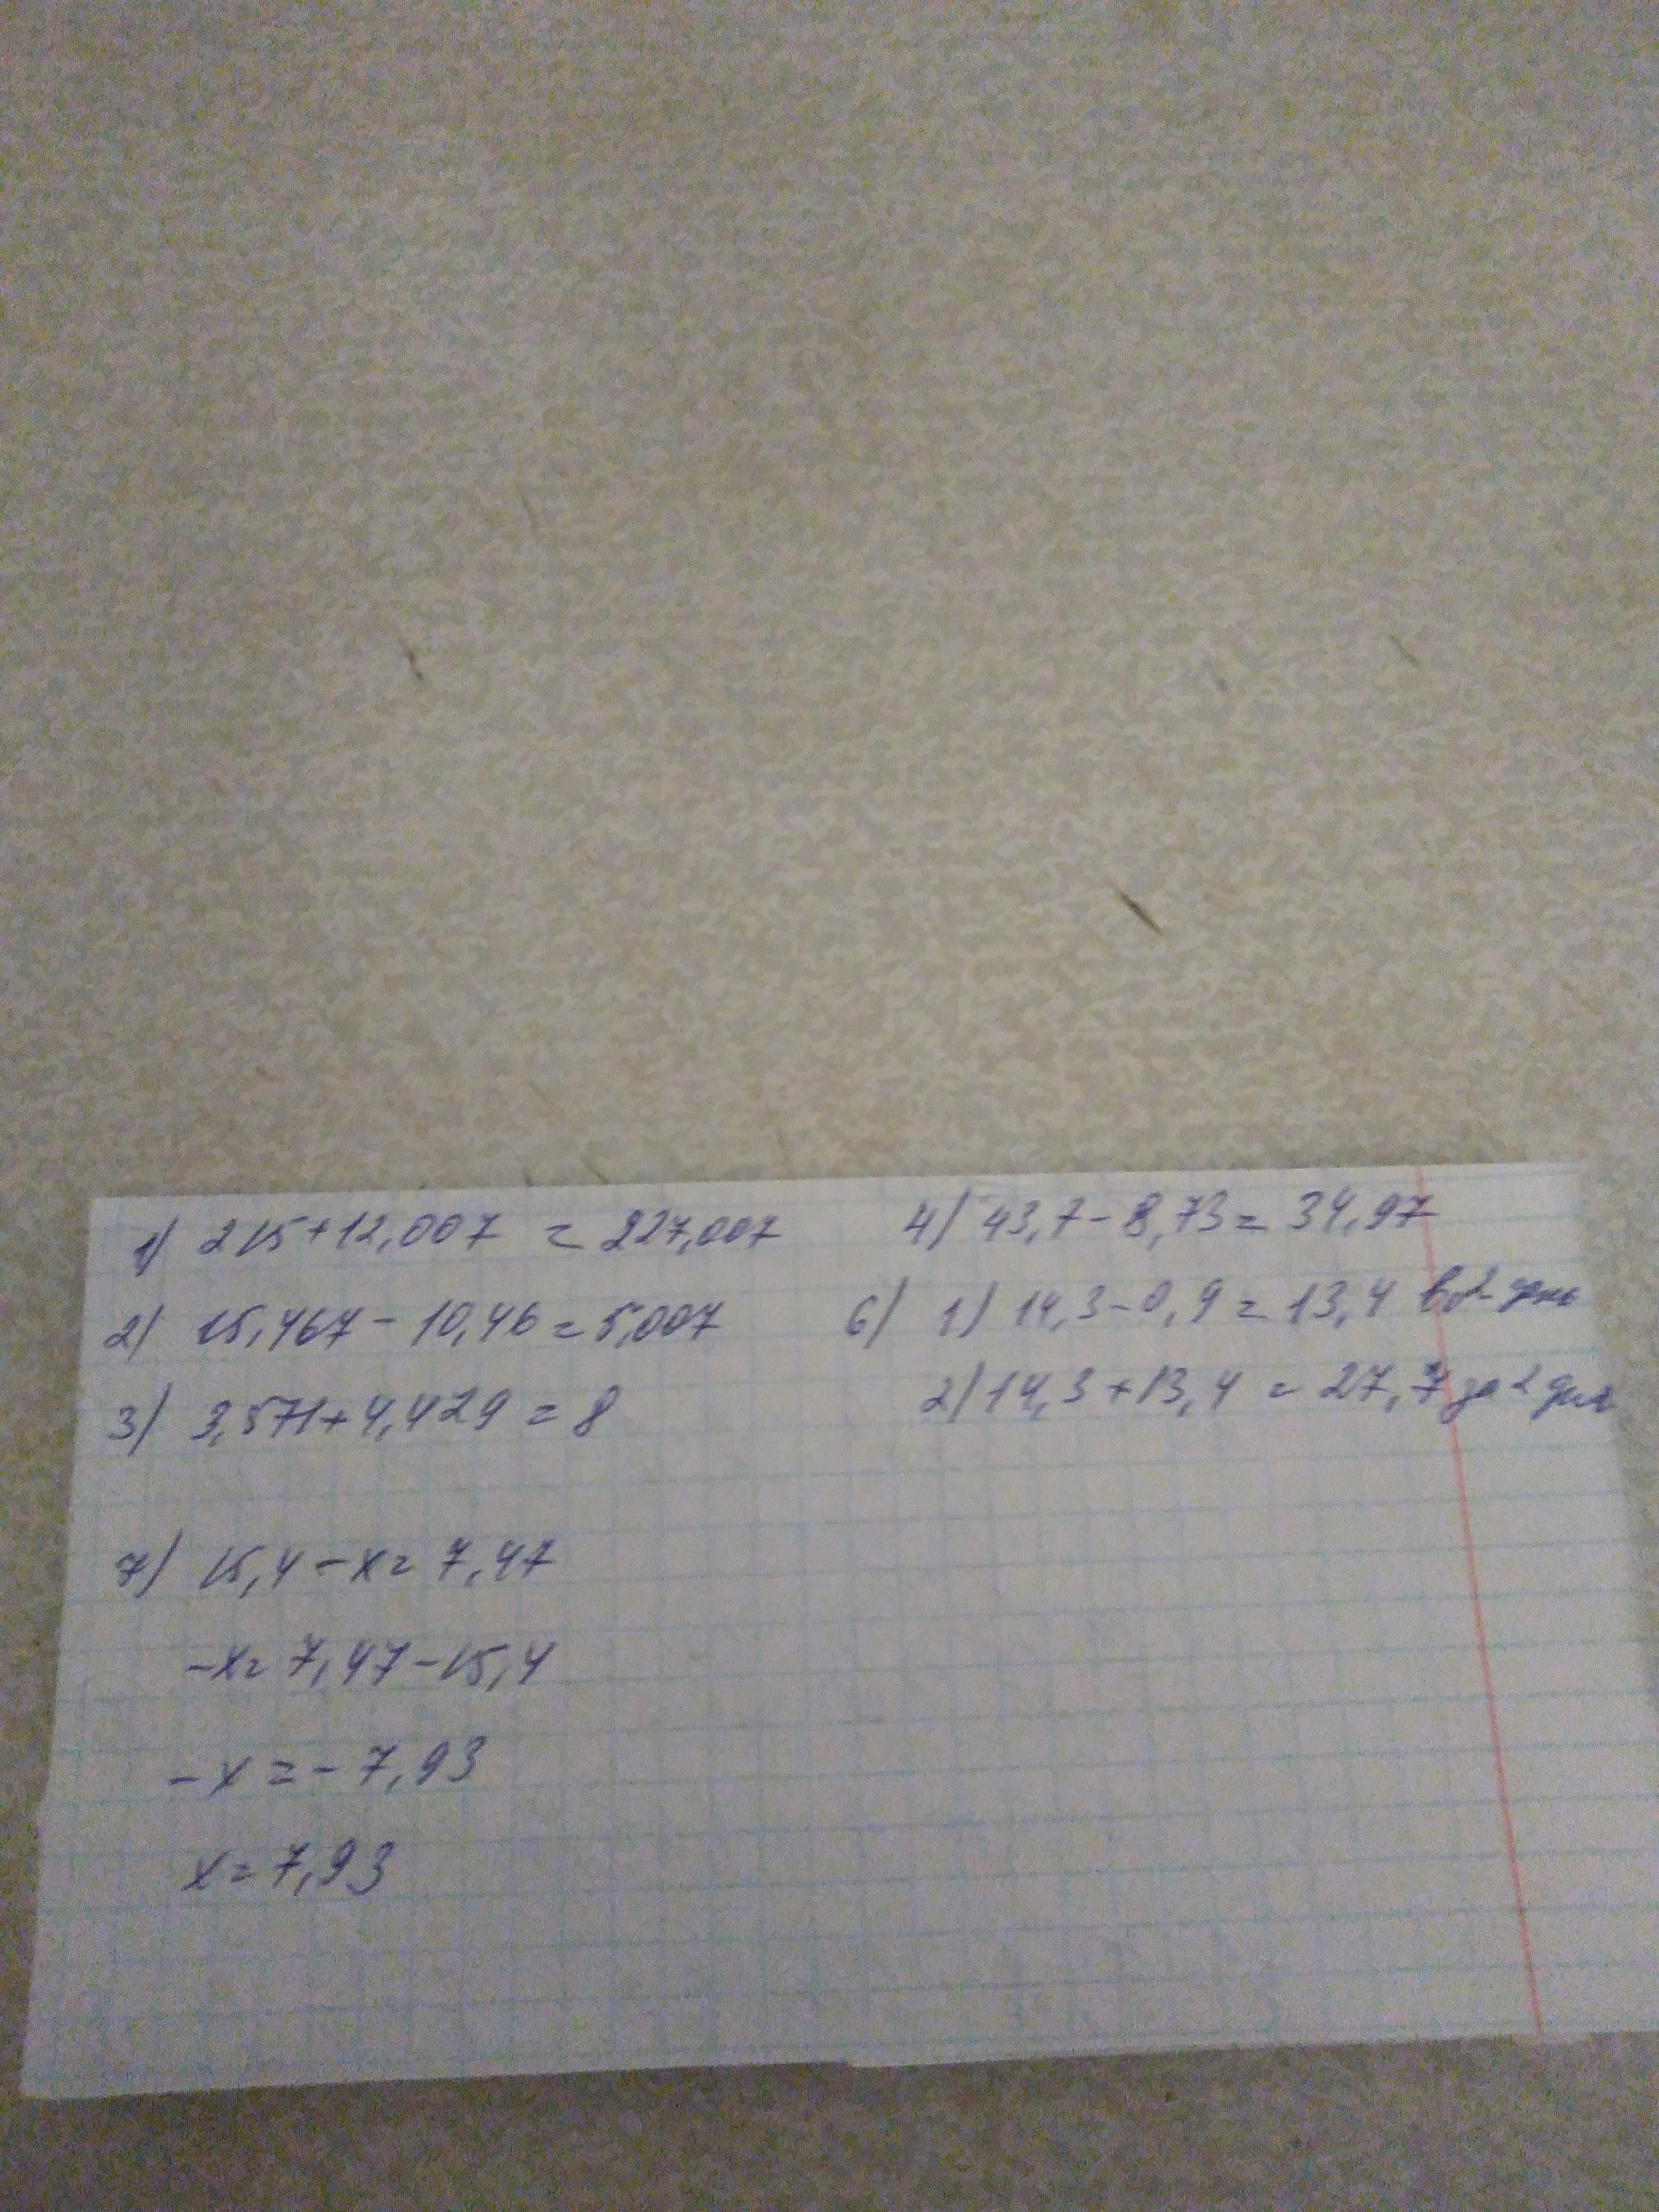 1) 215+12,007 = 227,007
2) 15,467-10,46=5,007
3) 3,571+4,429=8
4) 43,7-8,73=34,97
6) 1) 14,3-0,9=13,4 во 2- день
2) 14,3+13,4=27,7 за 2 дня
7) 15,4-x=7,47
-x=7,47-15,4
-x=-7,93
x=7,93